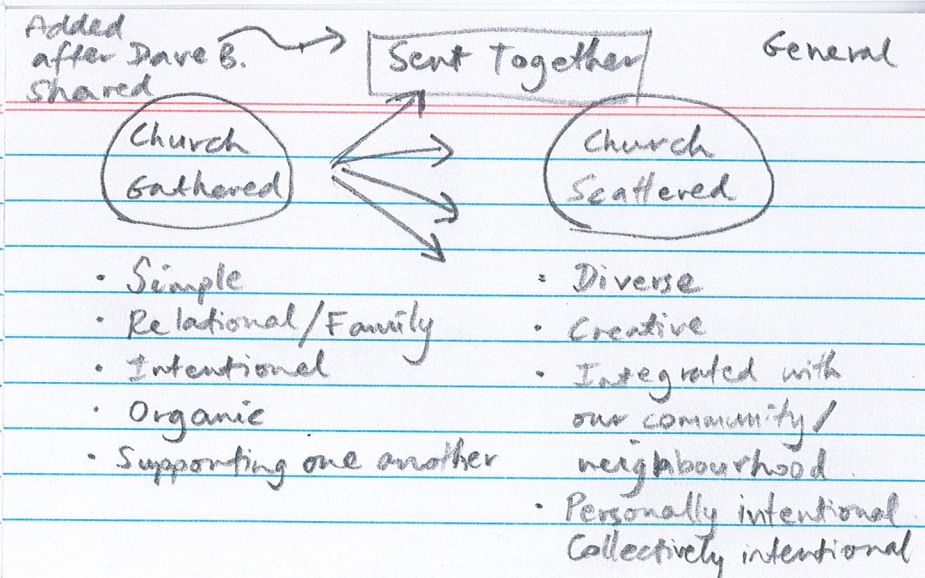 Added
after Dave B.
shared
Sent Together
General
Church
Gathered
Church
Scattered
· Simple
· Relational/Family
· Intentional
· Organic
· Supporting one another
· Diverse
· Creative
· Integrated with
our community/
neighbourhood
· Personally intentional
Collectively intentional